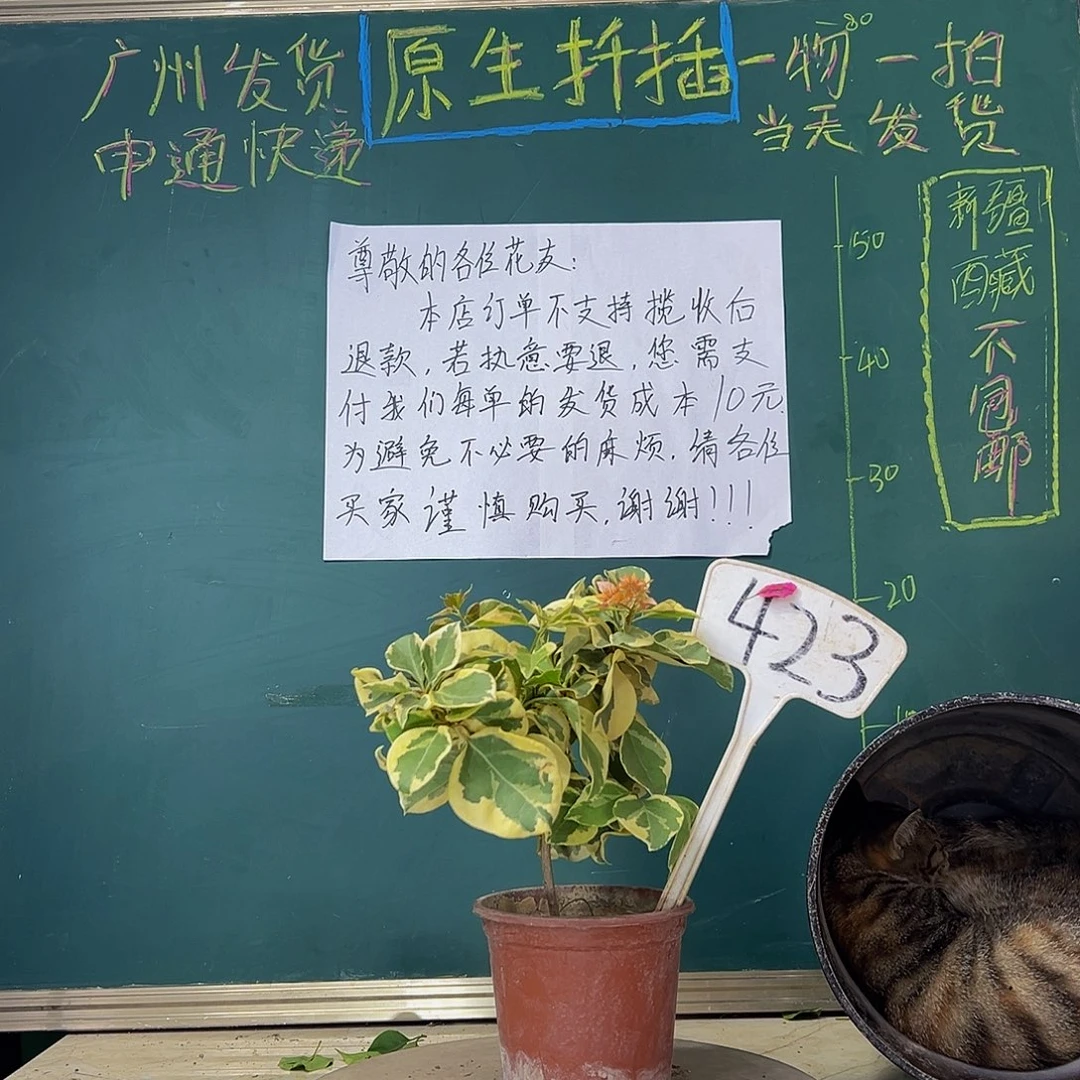 广州发货
申通快递
原生扦插
一物一拍
当天发货
尊敬的各位花友:
本店订单不支持揽收后
退款,若执意要退,您需支
付我们每单的发货成本10元.
为避免不必要的麻烦,请各位
买家谨慎购买,谢谢!!!
新疆
西藏
不
包
邮
80
50
40
30
20
423